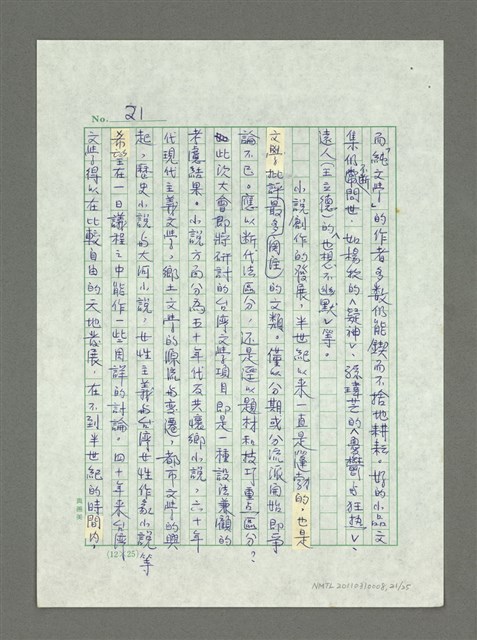 No. 21
而「純文學」的作者多數仍能鍥而不捨地耕耘。好的小品文
集仍不斷問世，如楊牧的〈疑神〉、孫瑋芒的〈憂鬱與狂熱〉、
遠人（王立德）的〈也想不幽默〉等。
小說創作的發展，半世紀以來一直是蓬勃的，也是
文學批評最多關注的文類。僅以分期或分流派開始即爭
論不已。應以斷代法區分，還是選以題材和技巧重點區分？
如此次大會即將研討的台灣文學項目即是一種設法兼顧的
考慮結果。小說方面分為五十年代反共懷鄉小說，六十年
代現代主義文學，鄉土文學的源流與變遷，都市文學的興
起，歷史小說與大河小說，女性主義與台灣女性作家小說等
希望在一日議程之中能作一些周詳的討論。四十年來台灣
文學得以在比較自由的天地發展，在不到半世紀的時間內，
(12×25)
NMTL20110310008, 21/25